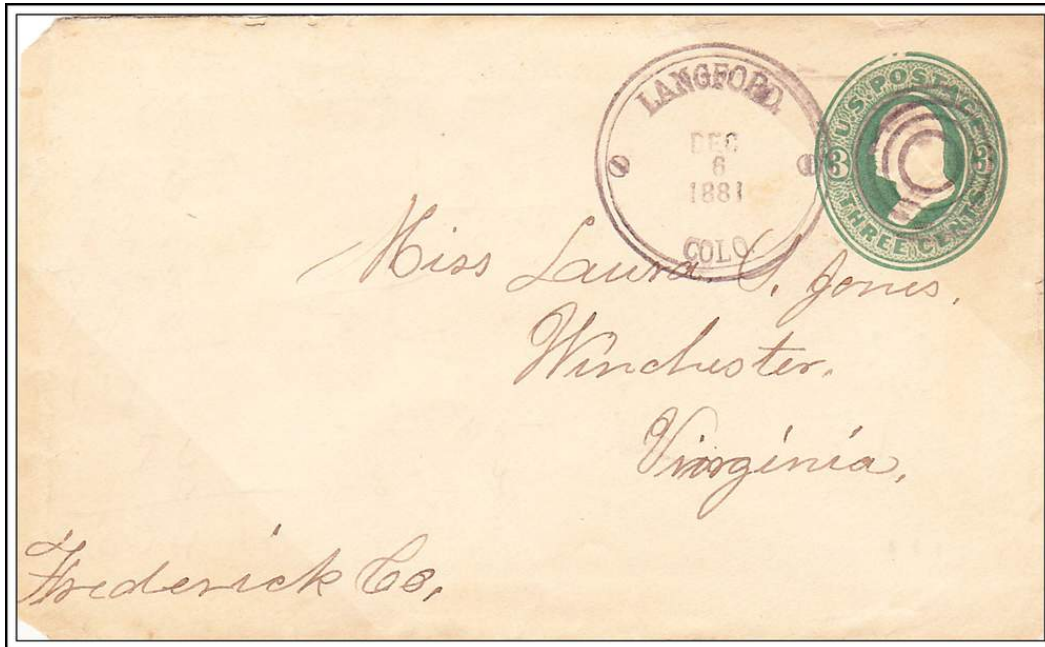 LANGFORD,
DEC
6
1881
COLO.
U.S. POSTAGE
3 3
THREE CENTS
Miss Laura S. Jones,
Winchester,
Virginia,
Frederick Co,